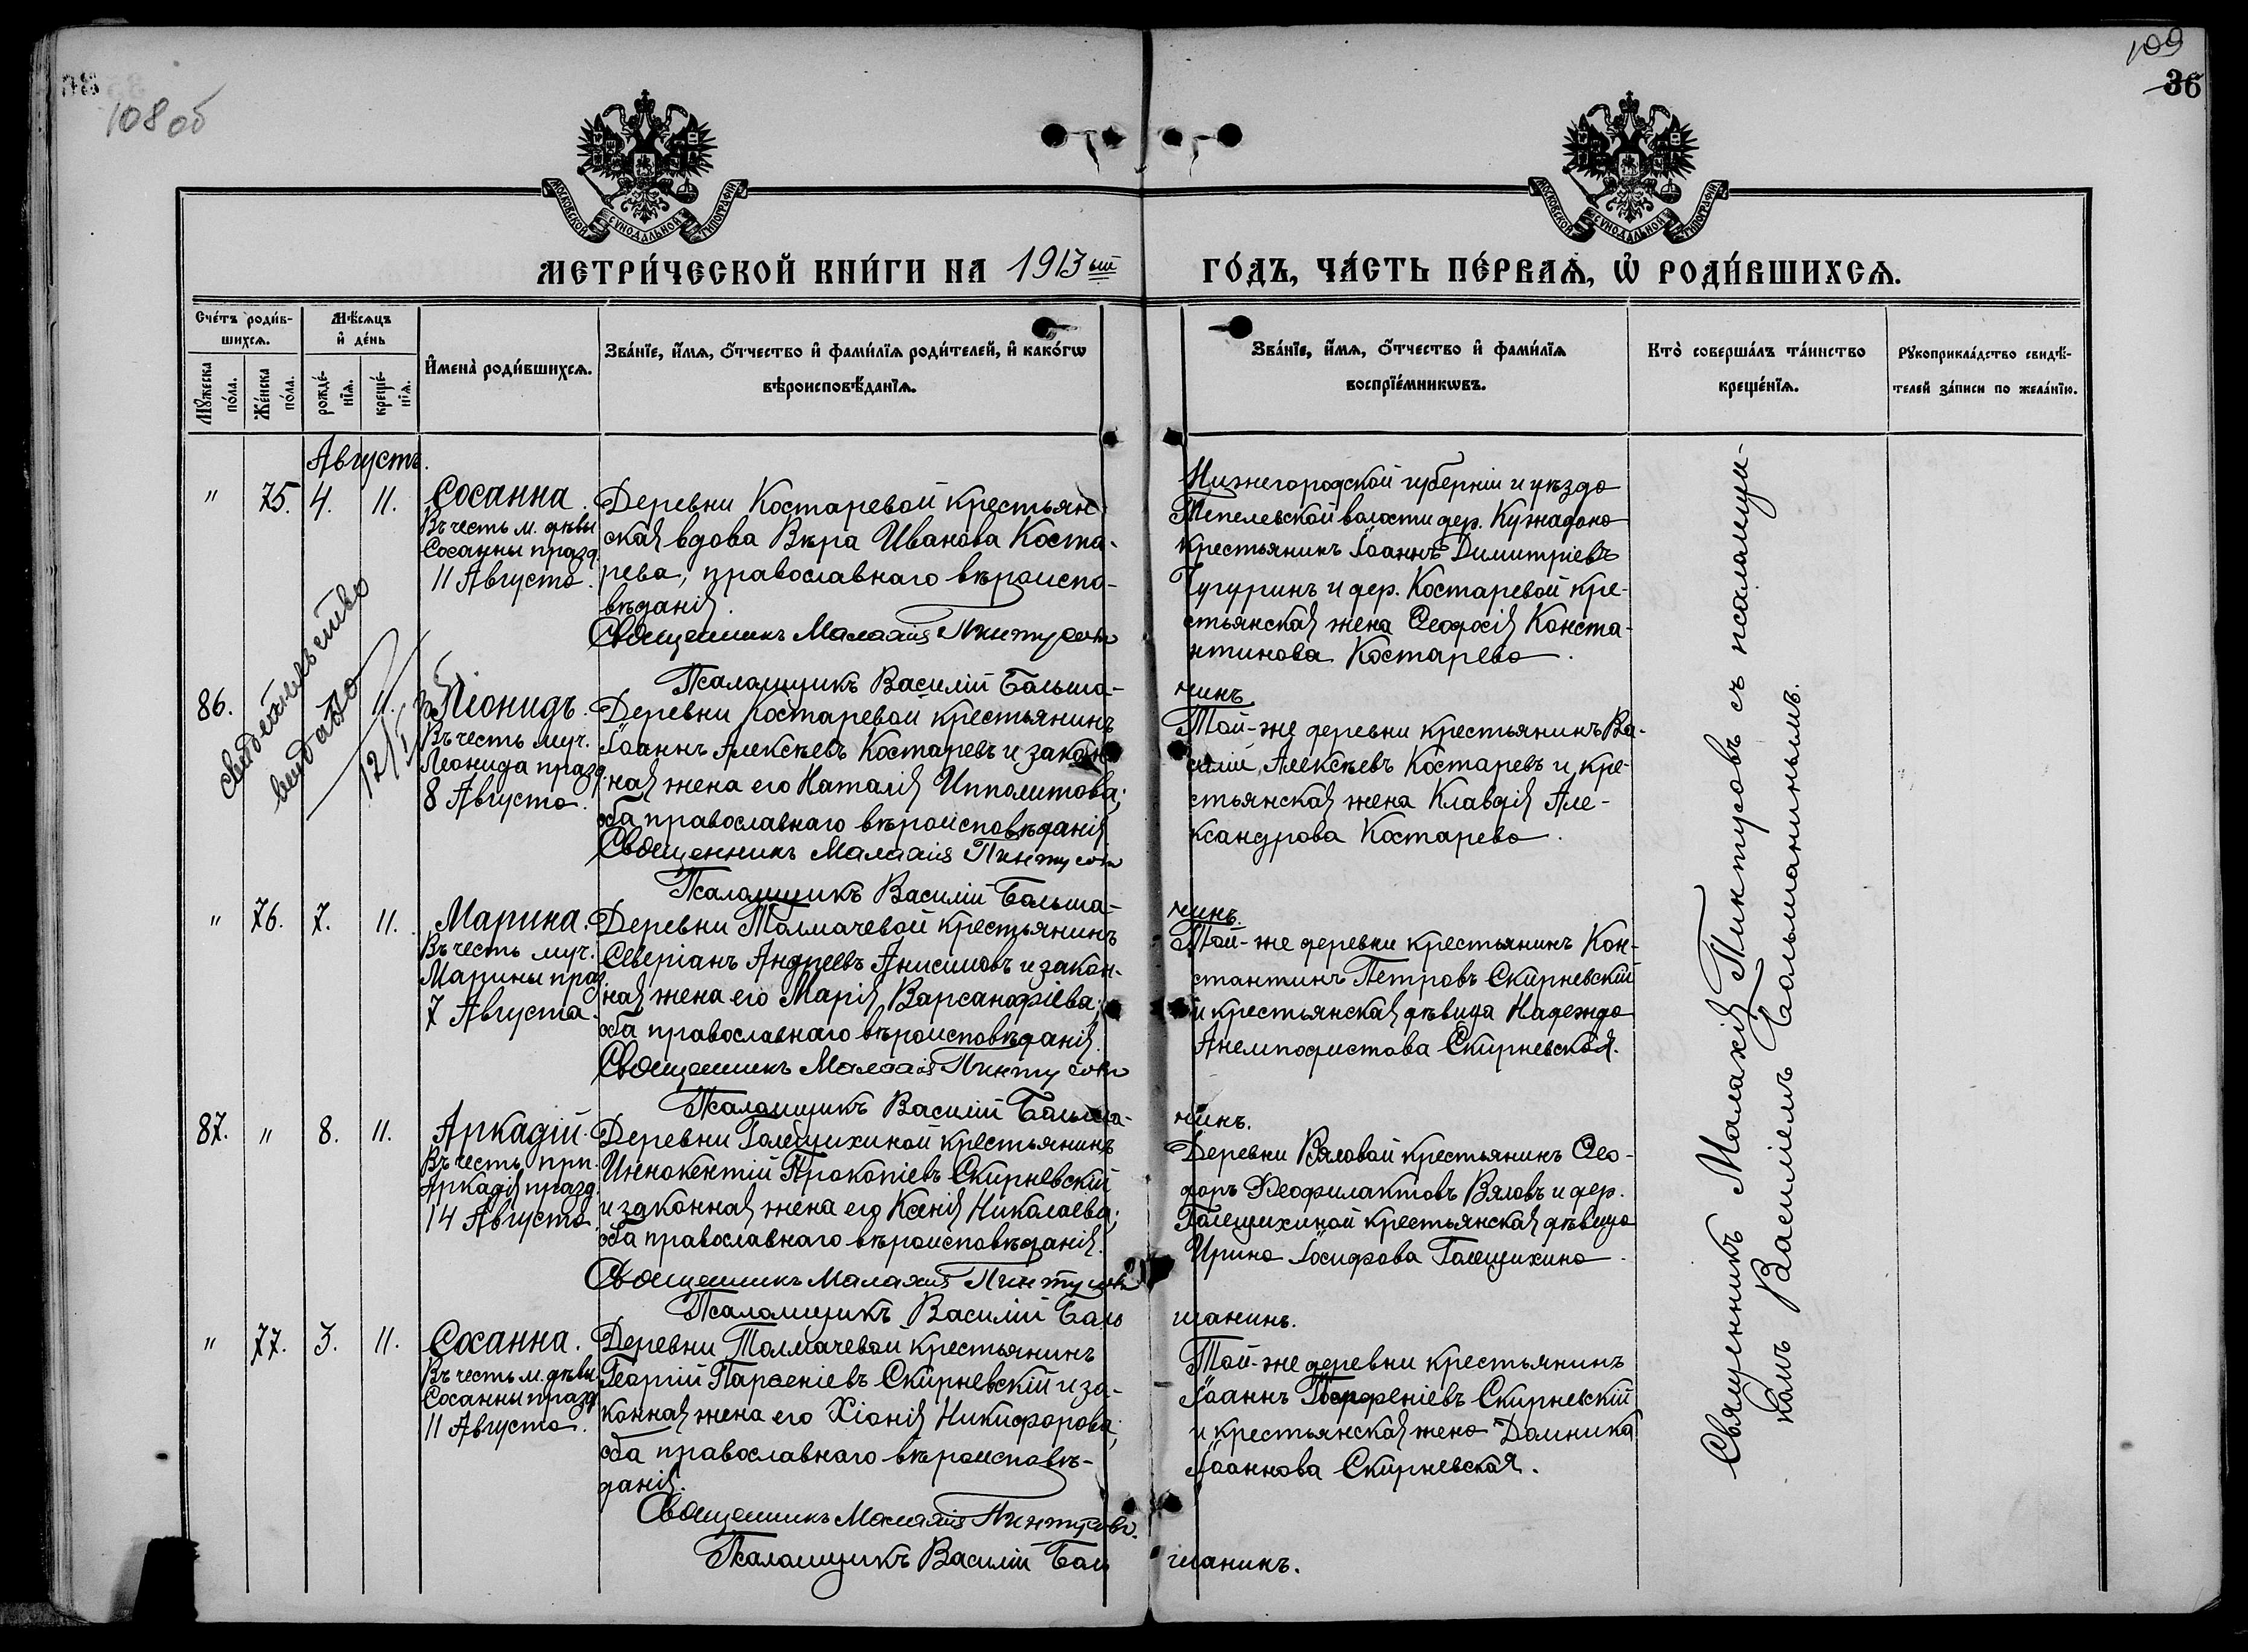 108 об
109
36
МОСКОВСКОЙ СѴНОДАЛЬНОЙ ТИПОГРАФІИ
МОСКОВСКОЙ СѴНОДАЛЬНОЙ ТИПОГРАФІИ
МЕТРИ́ЧЕСКОЙ КНИ́ГИ НА 1913ый ГО́ДЪ, ЧА́СТЬ ПЕ́РВАѦ, Ѽ РОДИ́ВШИХСѦ.
Сче́тъ роди́в-
шихсѧ.
Мꙋжеска по́ла.
Же́нска по́ла.
Мѣ́сѧцъ
и҆ де́нь
рожде́-
нїѧ.
креще́-
нїѧ.
И҆мена̀ роди́вшихсѧ.
Зва́нїе, и҆́мѧ, ѻ҆́тчество и҆ фами́лїѧ роди́телей, и҆ како́гѡ
вѣроисповѣ́данїѧ.
Зва́нїе, и҆́мѧ, ѻ҆́тчество и҆ фами́лїѧ
воспрїе́мникѡвъ.
Кто̀ соверша́лъ та́инство
креще́нїѧ.
Рꙋкоприкла́дство свидѣ́-
телей за́писи по жела́нїю.
Августъ.
" 75. 4. 11.
Сосанна.
Въ честь м. дѣвы
Сосанны празд.
11 Августа.
Деревни Костаревой крестьян-
ская вдова Вѣра Иванова Коста-
рева, православнаго вѣроиспо-
вѣданія.
Священникъ Малахія Пинтусовъ
Псаломщикъ Василій Больша-
нинъ
Нижегородской губерніи и уѣзда
Тепелевской волости дер.
крестьянинъ Іоаннъ Димитріевъ
Чугуринъ и дер. Костаревой кре-
стьянская жена Ѳеофсія Конста-
нтинова Костарева.
свидетельство
выдано
86. 11.
Леонидъ.
Въ честь муч.
Леонида празд.
8 Августа.
Деревни Костаревой крестьянинъ
Іоаннъ Алексѣевъ Костаревъ и закон-
ная жена его Наталія Ипполитова;
оба православнаго вѣроисповѣданія
Священникъ Малахія Пинтусовъ
Псаломщикъ Василій Больша-
нинъ.
Той-же деревни крестьянинъ Ва-
силій Алексѣевъ Костаревъ и кре-
стьянская жена Клавдія Але-
ксандрова Костарева.
" 76. 7. 11.
Марина.
Въ честь муч.
Марины празд.
7 Августа.
Деревни Толмачевой крестьянинъ
Северіанъ Андреевъ Анисимовъ и закон-
ная жена его Марія Варсанофіева;
оба православнаго вѣроисповѣданія.
Священникъ Малахія Пинтусовъ
Псаломщикъ Василій Больша-
нинъ.
Той-же деревни крестьянинъ Кон-
стантинъ Петровъ Скирневскій
и крестьянская дѣвица Надежда
Анемподистова Скирневская.
87. " 8. 11.
Аркадій.
Въ честь прп.
Аркадія празд.
14 Августа
Деревни Голещихиной крестьянинъ
Иннокентій Прокопіевъ Скирневскій
и законная жена его Ксенія Николаева;
оба православнаго вѣроисповѣданія.
Священникъ Малахія Пинтусовъ
Псаломщикъ Василій Боль
шанинъ.
Деревни Вяловой крестьянинъ Ѳео-
доръ Феофилактовъ Вяловъ и дер.
Голещихиной крестьянская дѣвица
Ирина Іосифова Голещихина.
" 77. 3. 11.
Сосанна.
Въ честь м. дѣвы
Сосанны празд.
11 Августа.
Деревни Толмачевой крестьянинъ
Георгій Парѳеніевъ Скирневскій и за-
конная жена его Хіонія Никифорова;
оба православнаго вѣроисповѣ-
данія.
Священникъ Малахія Пинтусовъ.
Псаломщикъ Василій Боль
шанинъ.
Той-же деревни крестьянинъ
Іоаннъ Парфеніевъ Скирневскій
и крестьянская жена Домника
Іоаннова Скирневская.
Священникъ Малахія Пинтусовъ съ псаломщи-
комъ Василіемъ Большанинымъ.